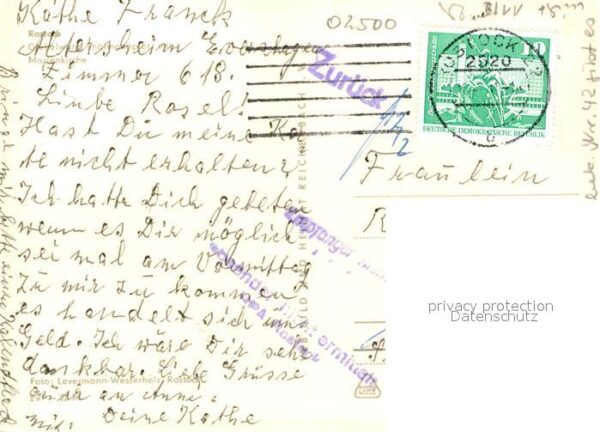 Käthe Franck
02500
Altersheim Evershagen
Zimmer 618.
Liebe Rosel!
Hast Du meine Kar
te nicht erhalten?
Ich hatte Dich gebeten
wenn es Dir möglich
sei mal am Vormittag
zu mir zu kommen
es handelt sich um
Geld. Ich wäre Dir sehr
dankbar. Liebe Grüsse
auch an Anne.
Deine Käthe
Bringe mir bitte einen
Zurück
ROSTOCK
2520
10
DEUTSCHE DEMOKRATISCHE REPUBLIK
Fräulein
Empfänger
Absender nicht ermittelt
Marienkirche
Foto: Levermann-Westerholz, Rostock
BILD UND HEIMAT REICHENBACH
privacy protection
Datenschutz